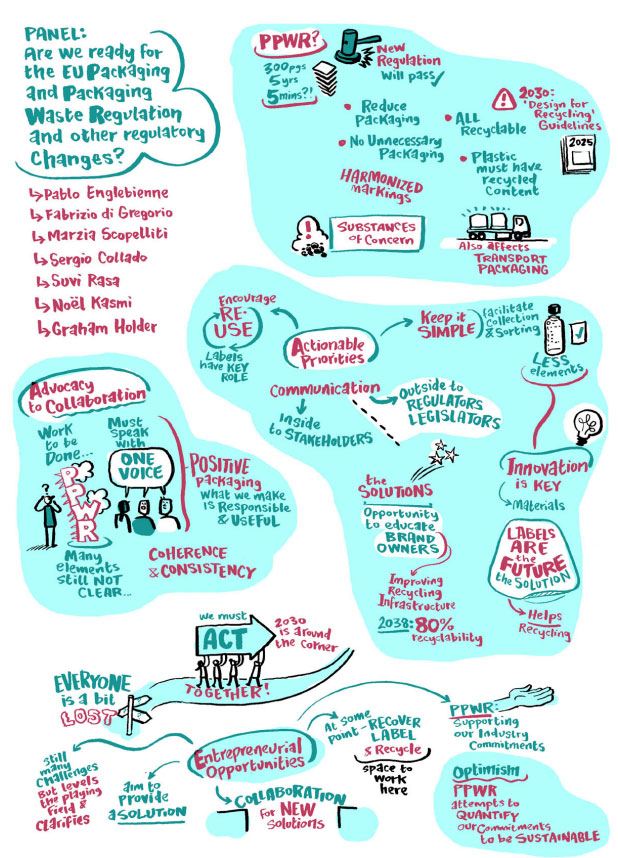 PANEL:
Are we ready for
the EU Packaging
and Packaging
Waste Regulation
and other regulatory
Changes?
↳Pablo Englebienne
↳Fabrizio di Gregorio
↳Marzia Scopelliti
↳Sergio Collado
↳Suvi Rasa
↳Noël Kasmi
↳Graham Holder
PPWR?
300pgs
5yrs
5mins?!
New
Regulation
Will pass✓
• Reduce
Packaging
• No Unnecessary
Packaging
HARMONIZED
markings
• ALL
Recyclable
• Plastic
must have
recycled
Content
2030:
'Design for
Recycling'
Guidelines
2025
SUBSTANCES
of Concern
Also affects
TRANSPORT
PACKAGING
Actionable
Priorities
Encourage
RE-
USE
Labels
have KEY
ROLE
Keep it
SIMPLE
facilitate
Collection
& Sorting
LESS
elements
Communication
Inside
to STAKEHOLDERS
Outside to
REGULATORS
LEGISLATORS
Innovation
is KEY
Materials
LABELS
ARE
the
FUTURE
the SOLUTION
Helps
Recycling
the
SOLUTIONS
Opportunity
to educate
BRAND
OWNERS
Improving
Recycling
Infrastructure
2038: 80%
recyclability
Advocacy
to Collaboration
Work
to be
Done...
PPWR
Many
elements
still NOT
CLEAR...
Must
speak
with
ONE
VOICE
POSITIVE
Packaging
what we make
is Responsible
& USEFUL
COHERENCE
& CONSISTENCY
we must
ACT
TOGETHER!
2030
is around
the corner
EVERYONE
is a bit
LOST
Entrepreneurial
Opportunities
Still
many
Challenges
But levels
the playing
field &
Clarifies
aim to
provide
a SOLUTION
COLLABORATION
for NEW
Solutions
At some
point-
RECOVER
LABEL
& Recycle
space to
work
here
PPWR:
Supporting
our Industry
Commitments
Optimism
PPWR
attempts to
QUANTIFY
our Commitments
to be SUSTAINABLE